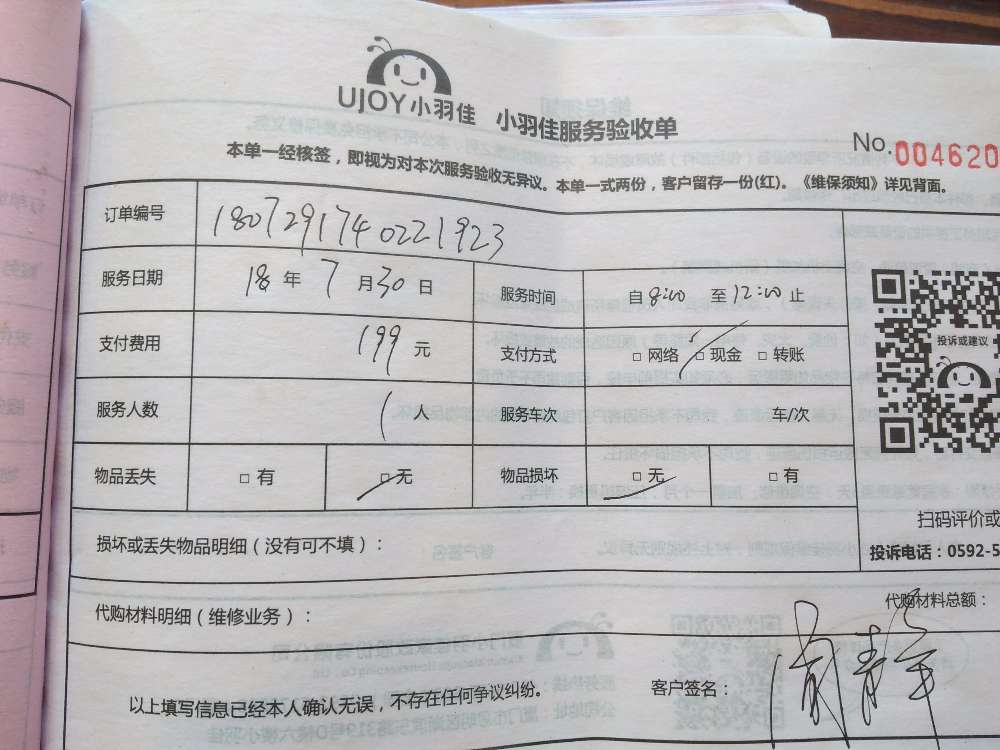 UJOY小羽佳 小羽佳服务验收单
No.004620
本单一经核签，即视为对本次服务验收无异议。本单一式两份，客户留存一份(红)。《维保须知》详见背面。
订单编号 180729174 0221923
服务日期 18 年 7 月 30 日 服务时间 自 8:00 至 12:00 止
支付费用 199 元 支付方式 □ 网络 □ 现金 □ 转账
投诉或建议
服务人数 1 人 服务车次 车/次
物品丢失 □ 有 □ 无 物品损坏 □ 无 □ 有
扫码评价或
损坏或丢失物品明细（没有可不填）：
投诉电话：0592-5
代购材料明细（维修业务）： 代购材料总额：
以上填写信息已经本人确认无误，不存在任何争议纠纷。 客户签名：